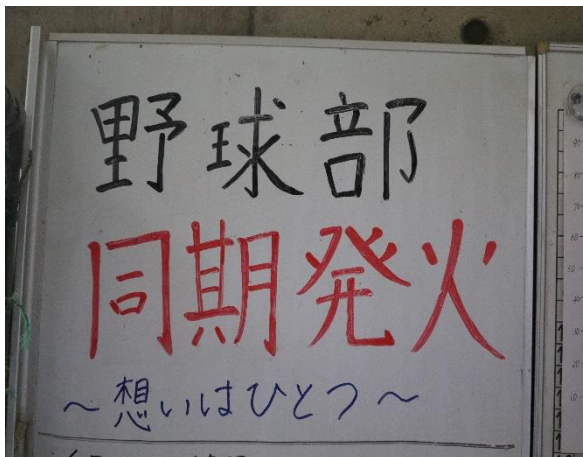 野球部
同期発火
～想いはひとつ～